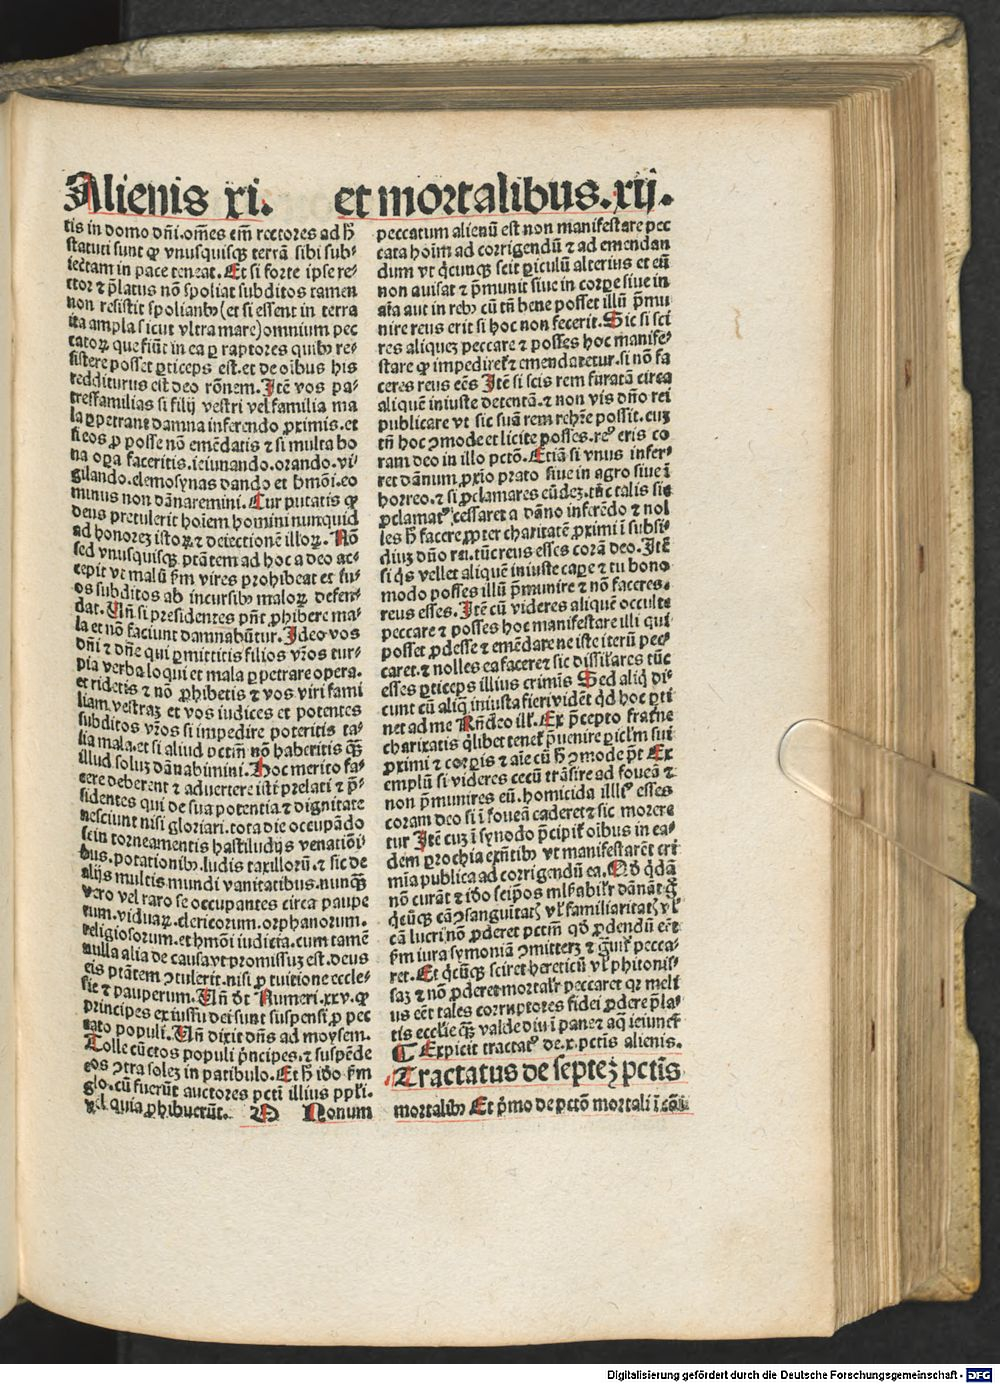 Alienis xi. et mortalibus.xij.
tis in domo dñi.om̃es em̃ rectores ad h̃
statuti sunt ꝙ vnusquisqꝫ terrã sibi sub-
iectam in pace teneat.Et si forte ipse re-
ctor ⁊ p̃latus nõ spoliat subditos tamen
non resistit spoliantibꝰ(et si essent in terra
ita ampla sicut vltra mare)omnium pec
catoꝝ que fiũt in ea ꝑ raptores quibꝰ re-
sistere posset ꝑticeps est.et de oibus his
redditurus est deo rõnem.Itẽ vos pa-
tresfamilias si filij vestri vel familia ma
la ꝑpetrant damna inferendo ꝓximis.et
si eos ꝓ posse nõ emẽdatis ⁊ si multa bo
na oꝑa faceritis.ieiunando.orando.vi-
gilando.elemosynas dando et hmõi.eo
minus non dãnaremini.Cur putatis ꝙ
deus pretulerit hoiem homini nunquid
ad honoreꝫ istoꝝ ⁊ deiectionẽ illoꝝ.Nõ
sed vnusquisqꝫ ptãtem ad hoc a deo ac-
cepit vt malũ fm̃ vires prohibeat et su-
os subditos ab incursibꝰ maloꝝ defen-
dat.Uñ si presidentes pñt ꝓhibere ma-
la et nõ faciunt damnabũtur.Ideo vos
dñi ⁊ dñe qui ꝑmittitis filios vr̃os tur-
pia verba loqui et mala ꝑpetrare opera.
et ridetis ⁊ nõ ꝓhibetis ⁊ vos viri fami
liam vestraꝫ et vos iudices et potentes
subditos vr̃os si impedire poteritis ta-
lia mala.et si aliud pctm̃ nõ haberitis
illud soluꝫ dãnabimini.Hoc merito fa-
cere deberent ⁊ aduertere isti prelati ⁊ p̃-
sidentes qui de sua potentia ⁊ dignitate
nesciunt nisi gloriari.tota die occupãdo
se in torneamentis hastiludijs venatiõi-
bus.potationibꝰ.ludis taxillorũ.⁊ sic de
alijs multis mundi vanitatibus.nunqꝫ
vero vel raro se occupantes circa paupe
rum.viduaꝝ.clericorum.orphanorum.
religiosorum.et hmõi iudicia.cum tamẽ
nulla alia de causa vt promissuꝫ est.deus
eis ptãtem ꝯtulerit.nisi ꝓ tuitione eccle-
sie ⁊ pauperum.Uñ dr̃ Numeri.xxv.ꝙ
principes ex iussu dei sunt suspensi ꝓ pec
cato populi.Uñ dixit dñs ad moysem.
Tolle cũctos populi p̃ncipes.⁊ suspẽde
eos ꝯtra soleꝫ in patibulo.Et h̃ iõo fm̃
glo.cũ fuerũt auctores pcti illius ppl'i.
vel quia ꝓhibuerũt. Nonum
peccatum alienũ est non manifestare pec
cata hoim̃ ad corrigendũ ⁊ ad emendan
dum vt q̇cunqꝫ scit ꝑiculũ alterius et eũ
non auisat ⁊ p̃munit siue in corꝑe siue in
aĩa aut in rebꝰ cũ tñ bene posset illũ p̃mu
nire reus erit si hoc non fecerit.Sic si sci
res aliqueꝫ peccare ⁊ posses hoc manife-
stare ꝙ impediret ⁊ emendaretur.si nõ fa
ceres reus eẽs Itẽ si scis rem furatã circa
aliquẽ iniuste detentã.⁊ non vis dño rei
publicare vt sic suã rem rehr̃e possit.cuꝫ
tñ hoc ꝯmode et licite posses.reꝰ eris co
ram deo in illo pctõ.Etiã si vnus infer-
ret dãnum ꝓxio prato siue in agro siue ĩ
horreo.⁊ si ꝓclamares eũdeꝫ.tũc talis sic
ꝓclamatꝰ cessaret a dãno inferẽdo ⁊ nol
les h̃ facere ꝓpter charitatẽ ꝓximi ĩ subsi-
diuꝫ dño rei.tũc reus esses corã deo.Itẽ
si q̇s vellet aliquẽ iniuste caꝑe ⁊ tu bono
modo posses illũ p̃munire ⁊ nõ faceres.
reus esses.Itẽ cũ videres aliquẽ occulte
peccare ⁊ posses hoc manifestare illi qui
posset ꝓdesse ⁊ emẽdare ne iste iterũ pec-
caret.⁊ nolles ea facere ⁊ sic dissil'ares tũc
esses ꝑticeps illius crimis Sed aliq̇ di-
cunt cũ aliq̃ iniusta fieri vidẽt q̇d hoc ꝑti
net ad me Rñdeo ill'.Ex p̃cepto frat̃ne
charitatis q̇libet tenet̃ p̃uenire ꝑicl'm sui
ꝓximi ⁊ corꝑis ⁊ aĩe cũ h̃ ꝯmode p̃t Ex
emplũ si videres cecũ trãsire ad foueã ⁊
non p̃munires eũ.homicida illiꝰ esses
coram deo si ĩ foueã caderet ⁊ sic morere
tur Itẽ cuꝫ ĩ synodo p̃cipit̃ oibus in ea-
dem ꝑrochia exñtibꝰ vt manifestarẽt cri
mĩa publica ad corrigendũ ea.Qõ q̇dã
nõ curãt ⁊ iõo seip̃os ml'tabil'r dãnãt q̃
q̇cũqꝫ cã ꝯsanguĩtatꝭ vl' familiaritatꝭ vl'
cã lucri nõ ꝓderet pctm̃ qõ ꝓdendũ eẽt
fm̃ iura symoniã ꝯmitteret ⁊ g̃uit̃ pecca-
ret.Et q̇cũqꝫ sciret hereticũ vl' phitonis-
saꝫ ⁊ nõ ꝓderet mortal'r peccaret qꝛ meli
us eẽt tales corruptores fidei ꝓdere p̃la-
tis eccl'ie qꝫ valde diu ĩ pane ⁊ aq̃ ieiunet̃
Explicit tractatꝰ de.x.pctis alienis.
Tractatus de septeꝫ pctis
mortalibꝰ Et p̃mo de pctõ mortali ĩ cõi
Digitalisierung gefördert durch die Deutsche Forschungsgemeinschaft - DFG